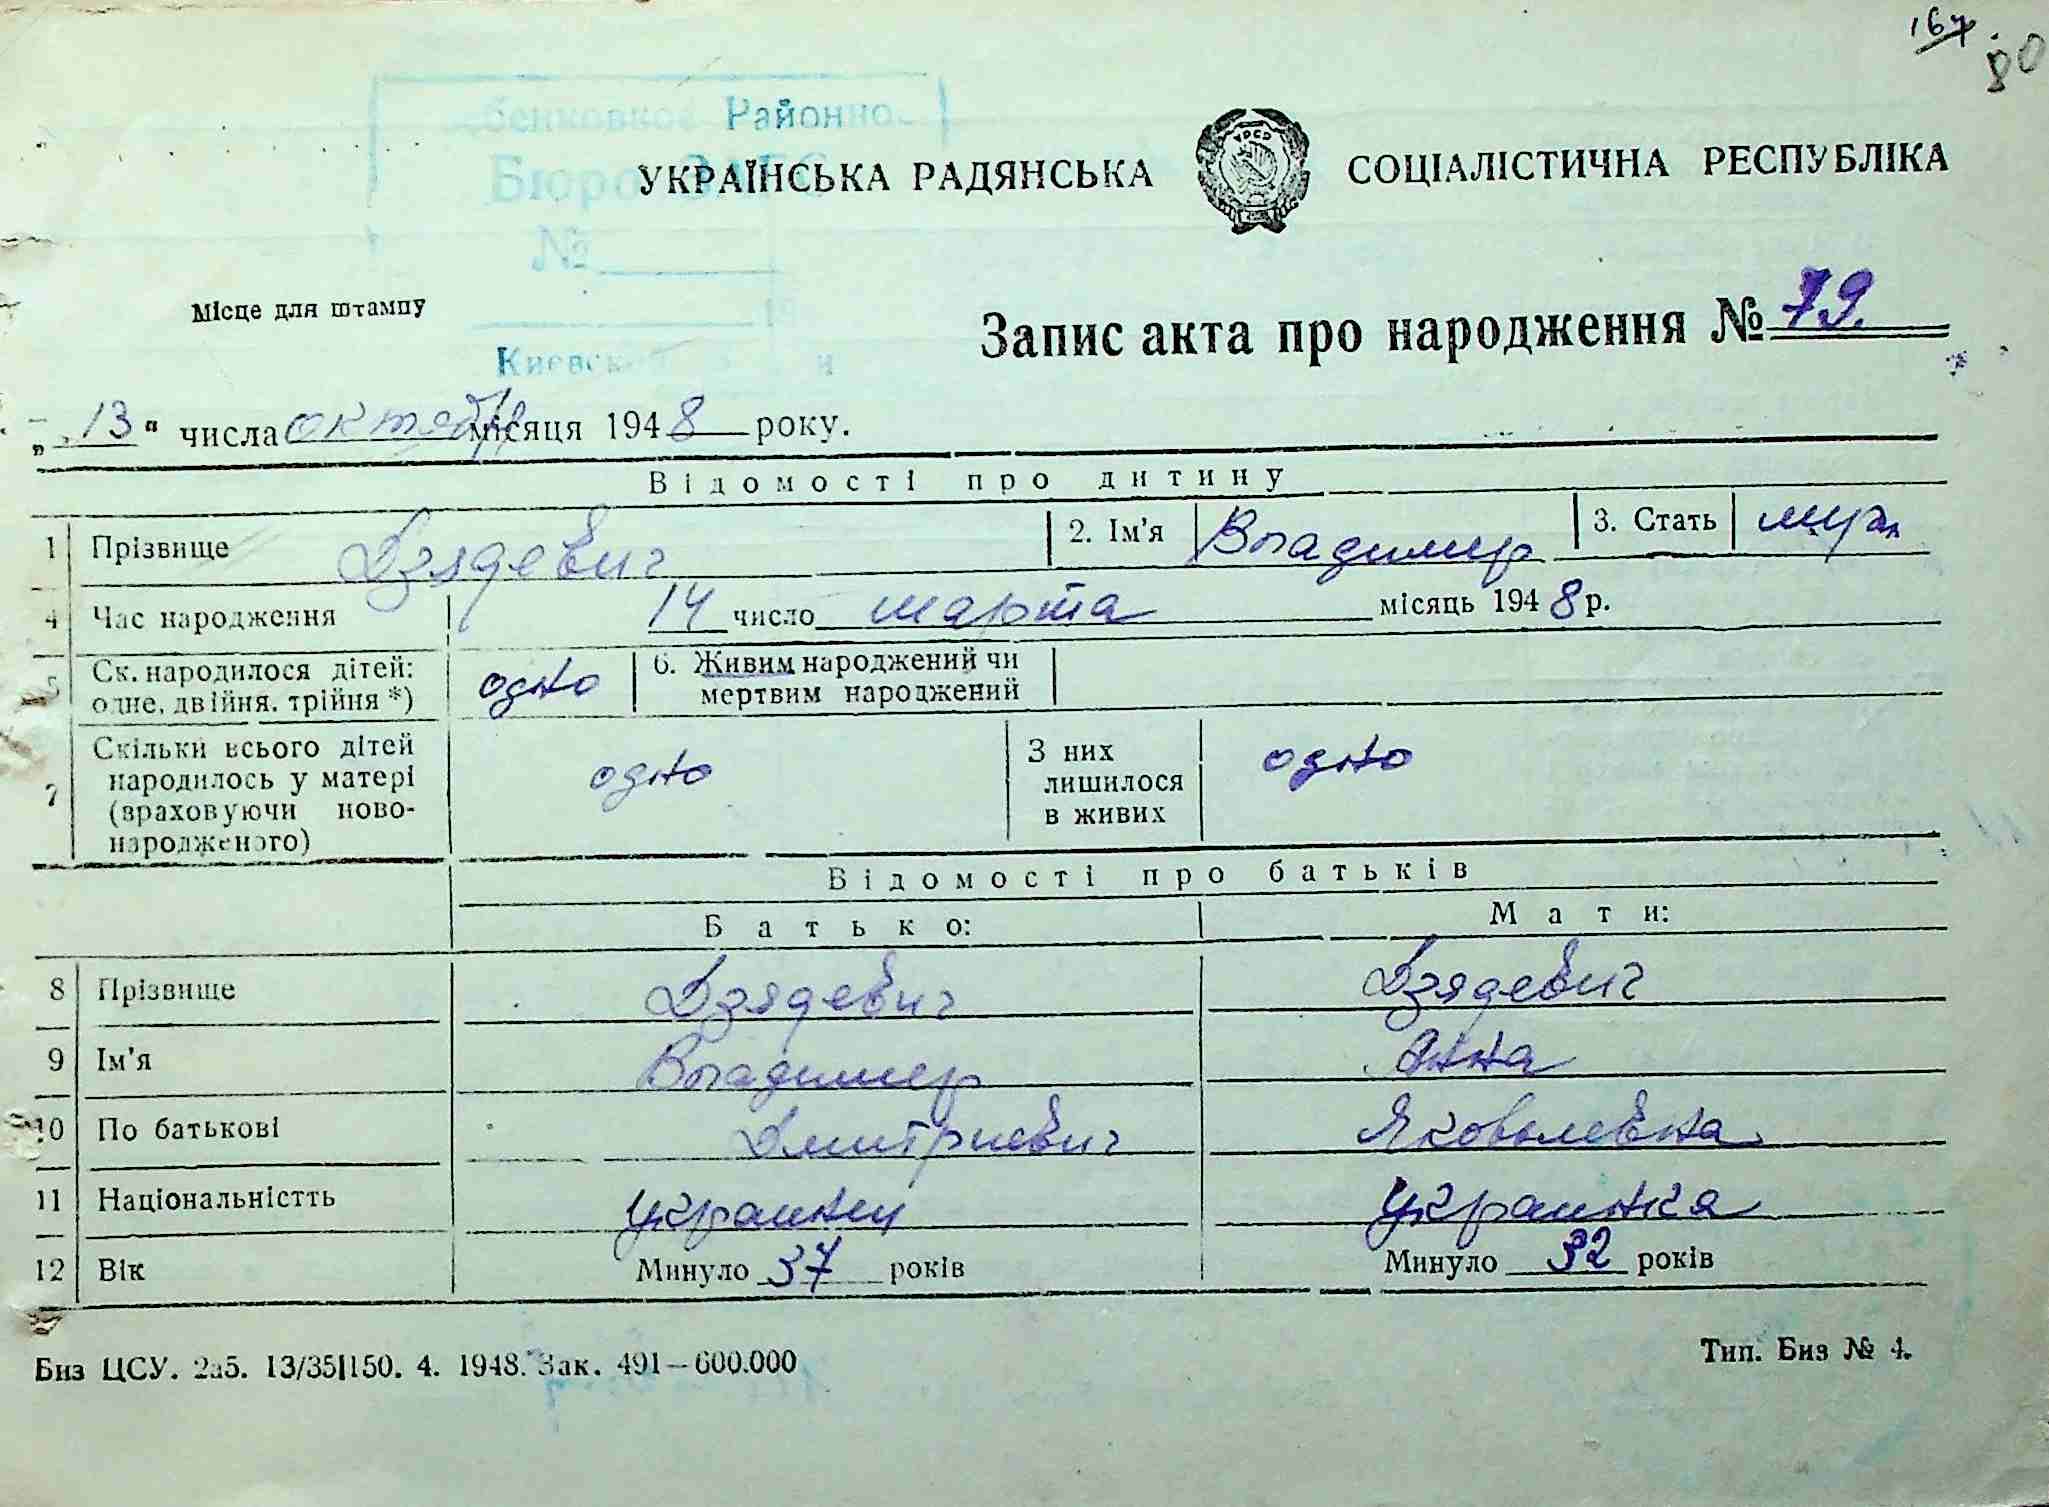 167.
80
Районно
Бюро ЗАГС
№
Києвск
УКРАЇНСЬКА РАДЯНСЬКА СОЦІАЛІСТИЧНА РЕСПУБЛІКА
УРСР
Місце для штампу
Запис акта про народження № 79.
„13“ числа октября місяця 1948 року.
Відомості про дитину
1 Прізвище Дзядевич 2. Ім'я Владимир 3. Стать муж
4 Час народження 14 число марта місяць 1948 р.
5 Ск. народилося дітей: одно 6. Живим народжений чи
одне, двійня, трійня *) мертвим народжений
7 Скільки всього дітей
народилось у матері
(враховуючи ново-
народженого)
одно
З них
лишилося
в живих
одно
Відомості про батьків
Батько: Мати:
8 Прізвище Дзядевич Дзядевич
9 Ім'я Владимир Анна
10 По батькові Дмитриевич Яковлевна
11 Національністть украинец украинка
12 Вік Минуло 37 років Минуло 32 років
Биз ЦСУ. 2а5. 13/35|150. 4. 1948. Зак. 491—600.000
Тип. Биз № 4.